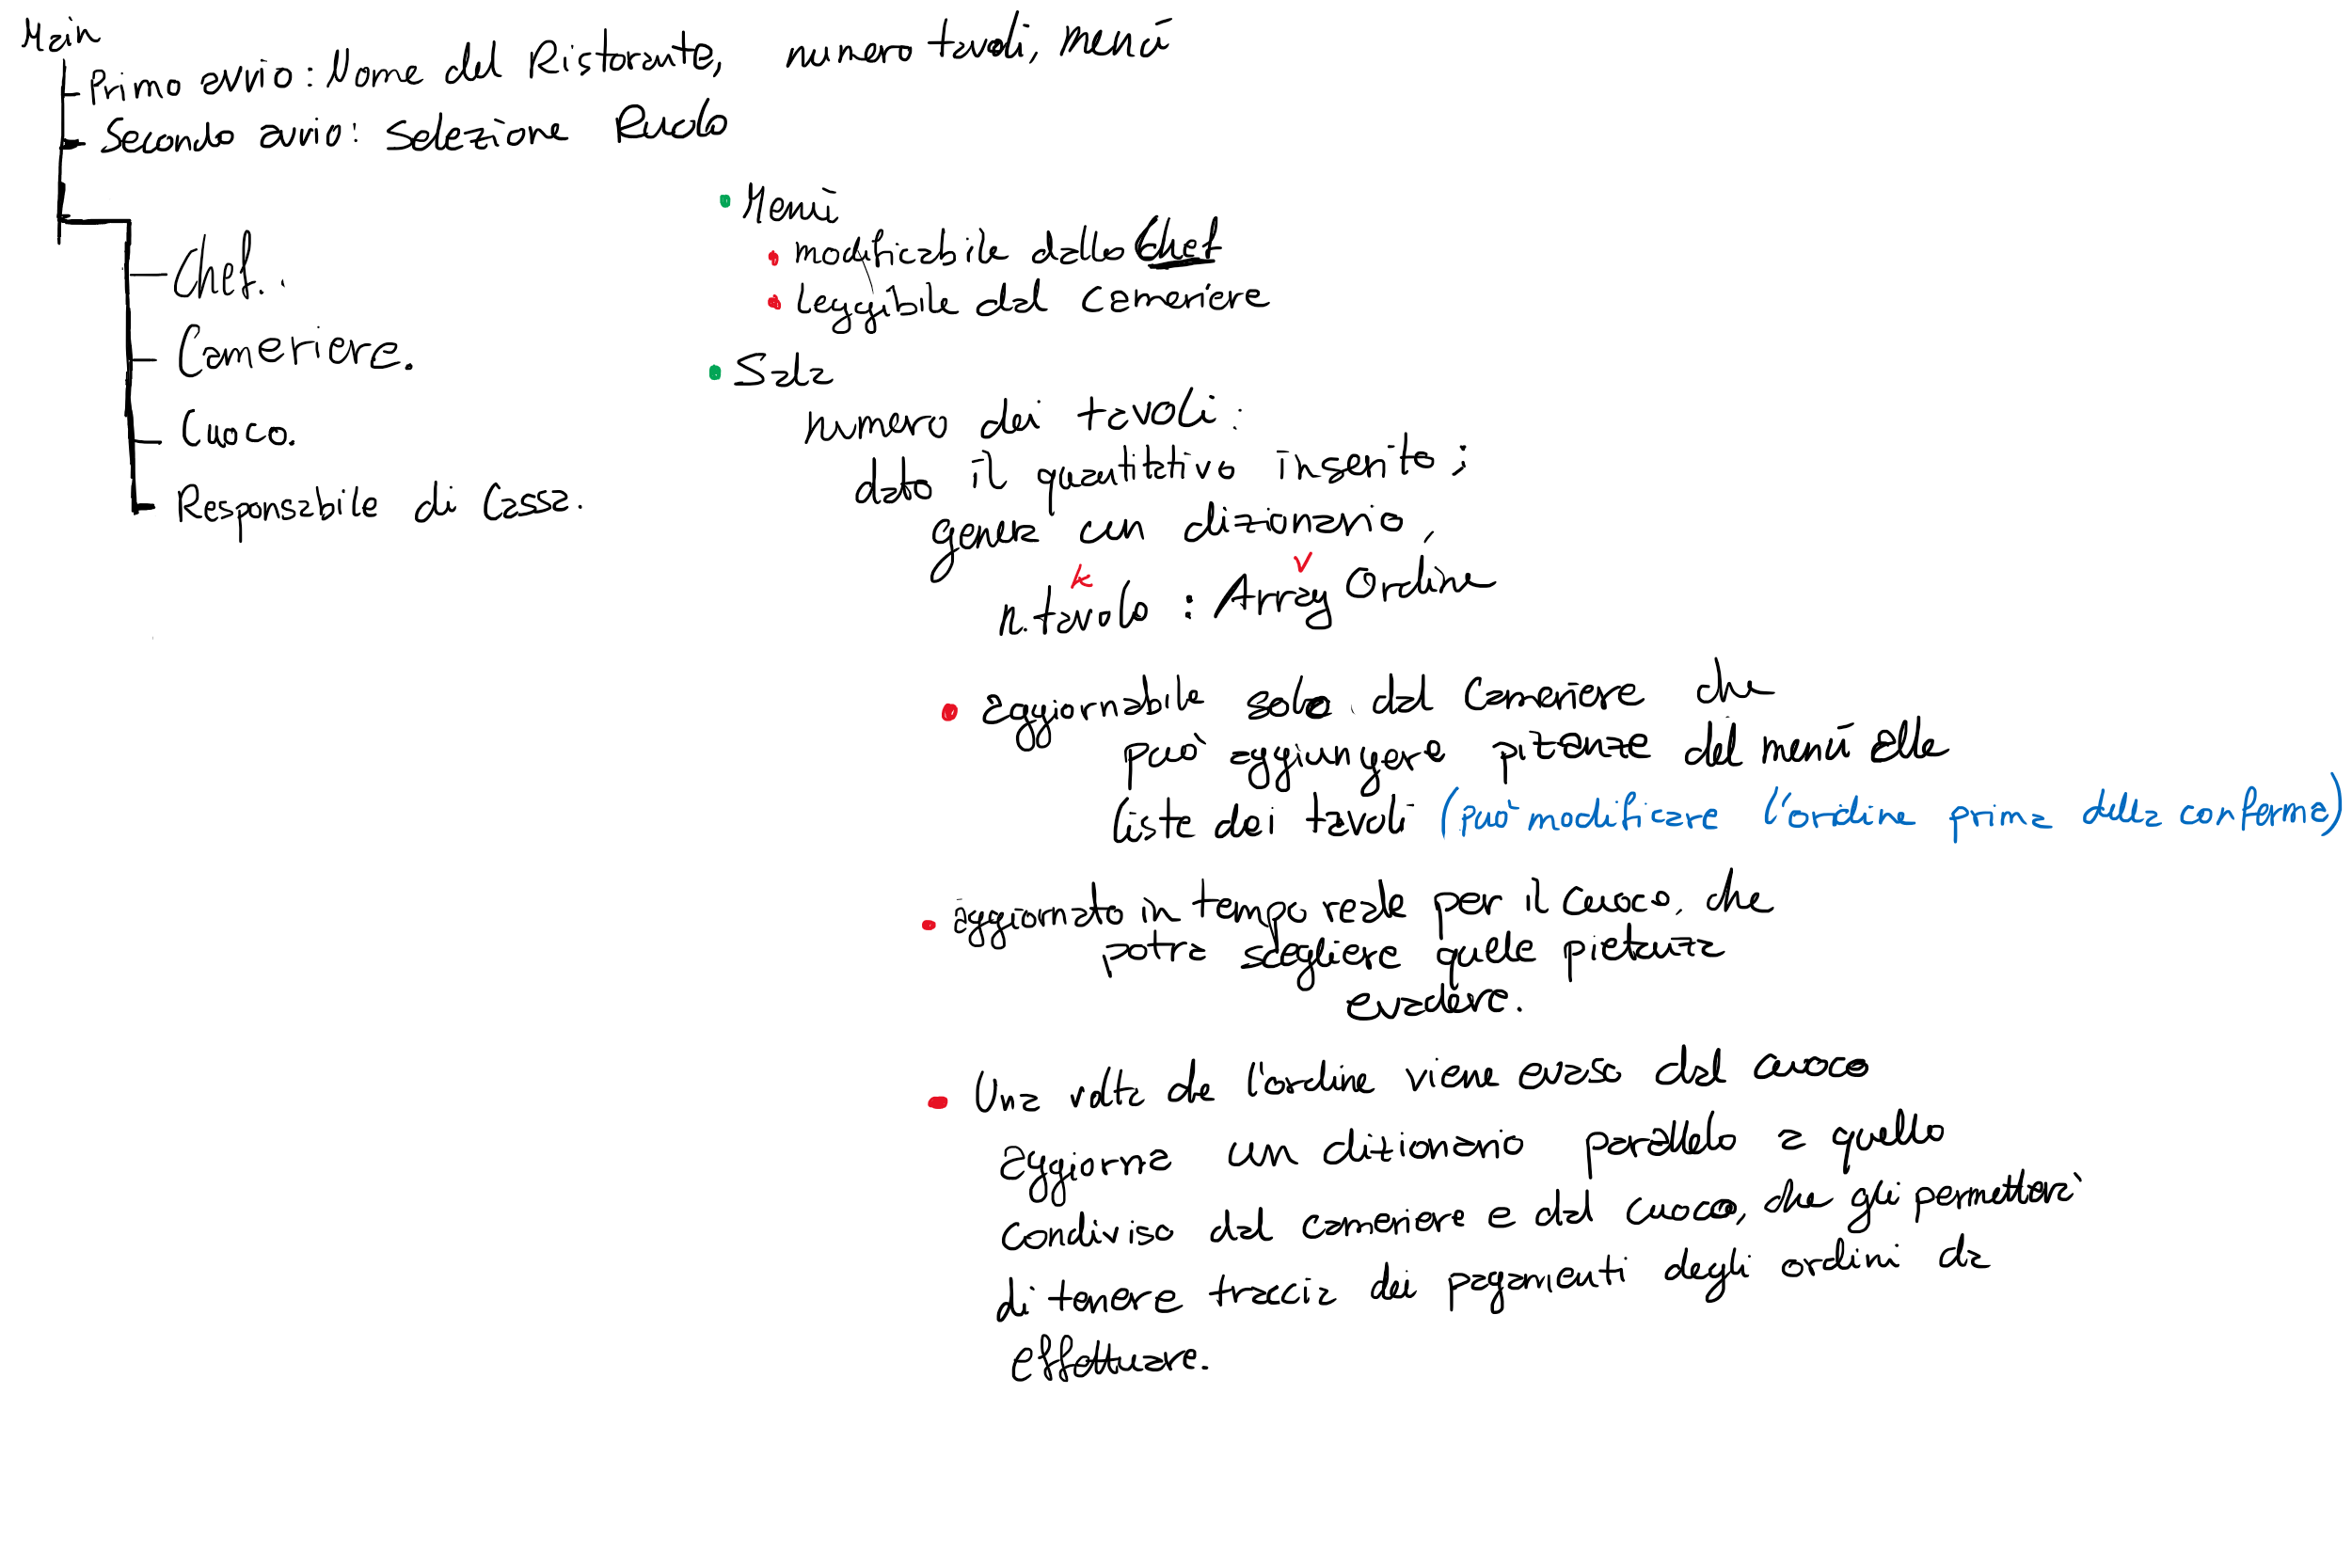 Main
Primo avvio: Nome del Ristorante, numero tavoli, menù
Secondo avvio: Selezione Ruolo
Chef.
Cameriere.
Cuoco.
Responsabile di Cassa.
Menù
modificabile dallo Chef
Leggibile dal cameriere
Sala
numero dei tavoli:
dato il quantitativo inserito;
genera un dizionario,
k v
n.tavolo : Array Ordine
aggiornabile solo dal Cameriere che
può aggiungere pitanze del menù alle
liste dei tavoli (può modificare l'ordine prima della conferma)
aggiornato in tempo reale per il cuoco, che
potra scegliere quale pietanza
evadere.
Una volta che l'ordine viene evaso dal cuoco
aggiorna un dizionario parallelo a quello
condiviso dal cameriere e dal cuoco, che gli permetterà
di tenere traccia dei pagamenti degli ordini da
effettuare.